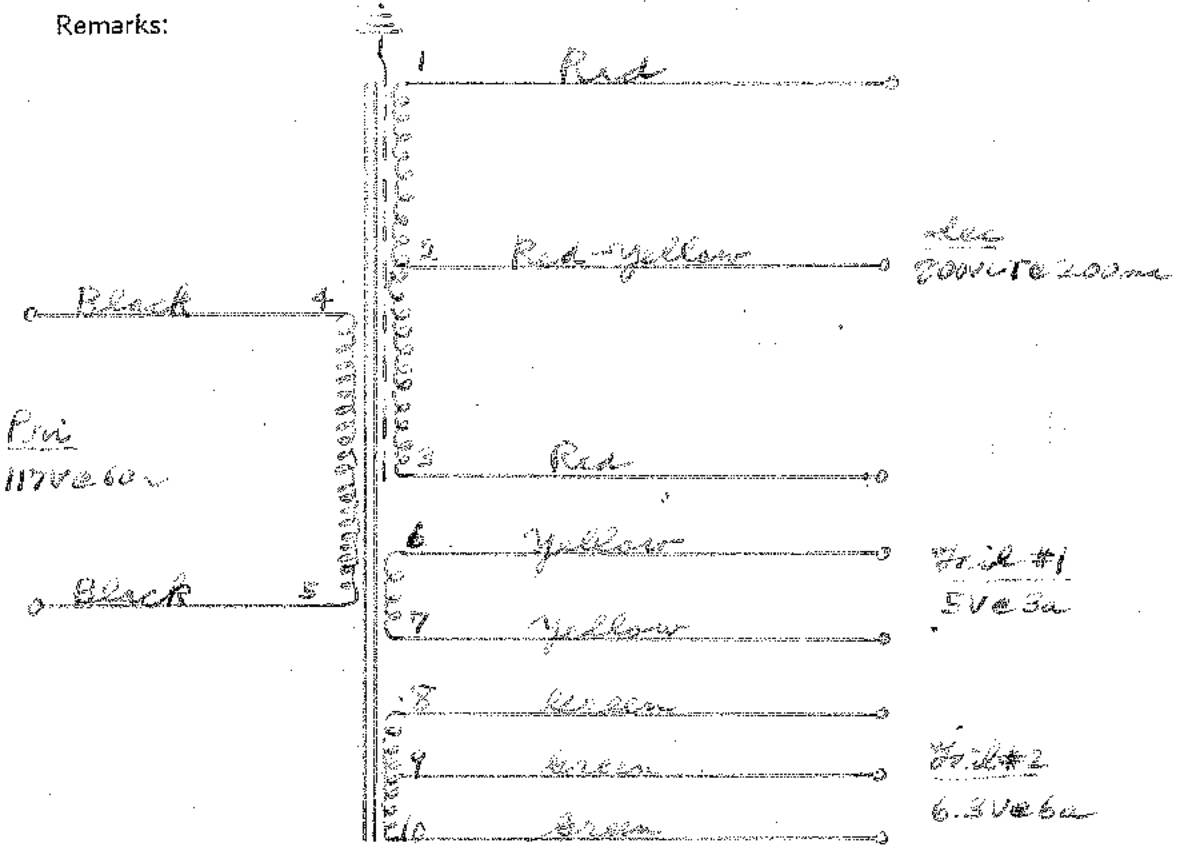 Remarks:
1 Red
2 Red-Yellow
Sec
@ 200ma
Black 4
Pri
117V@60~
3 Red
6 Yellow
Fil #1
5V@3a
Black 5
7 Yellow
8 Green
9 Green
Fil #2
6.3V@6a
10 Green